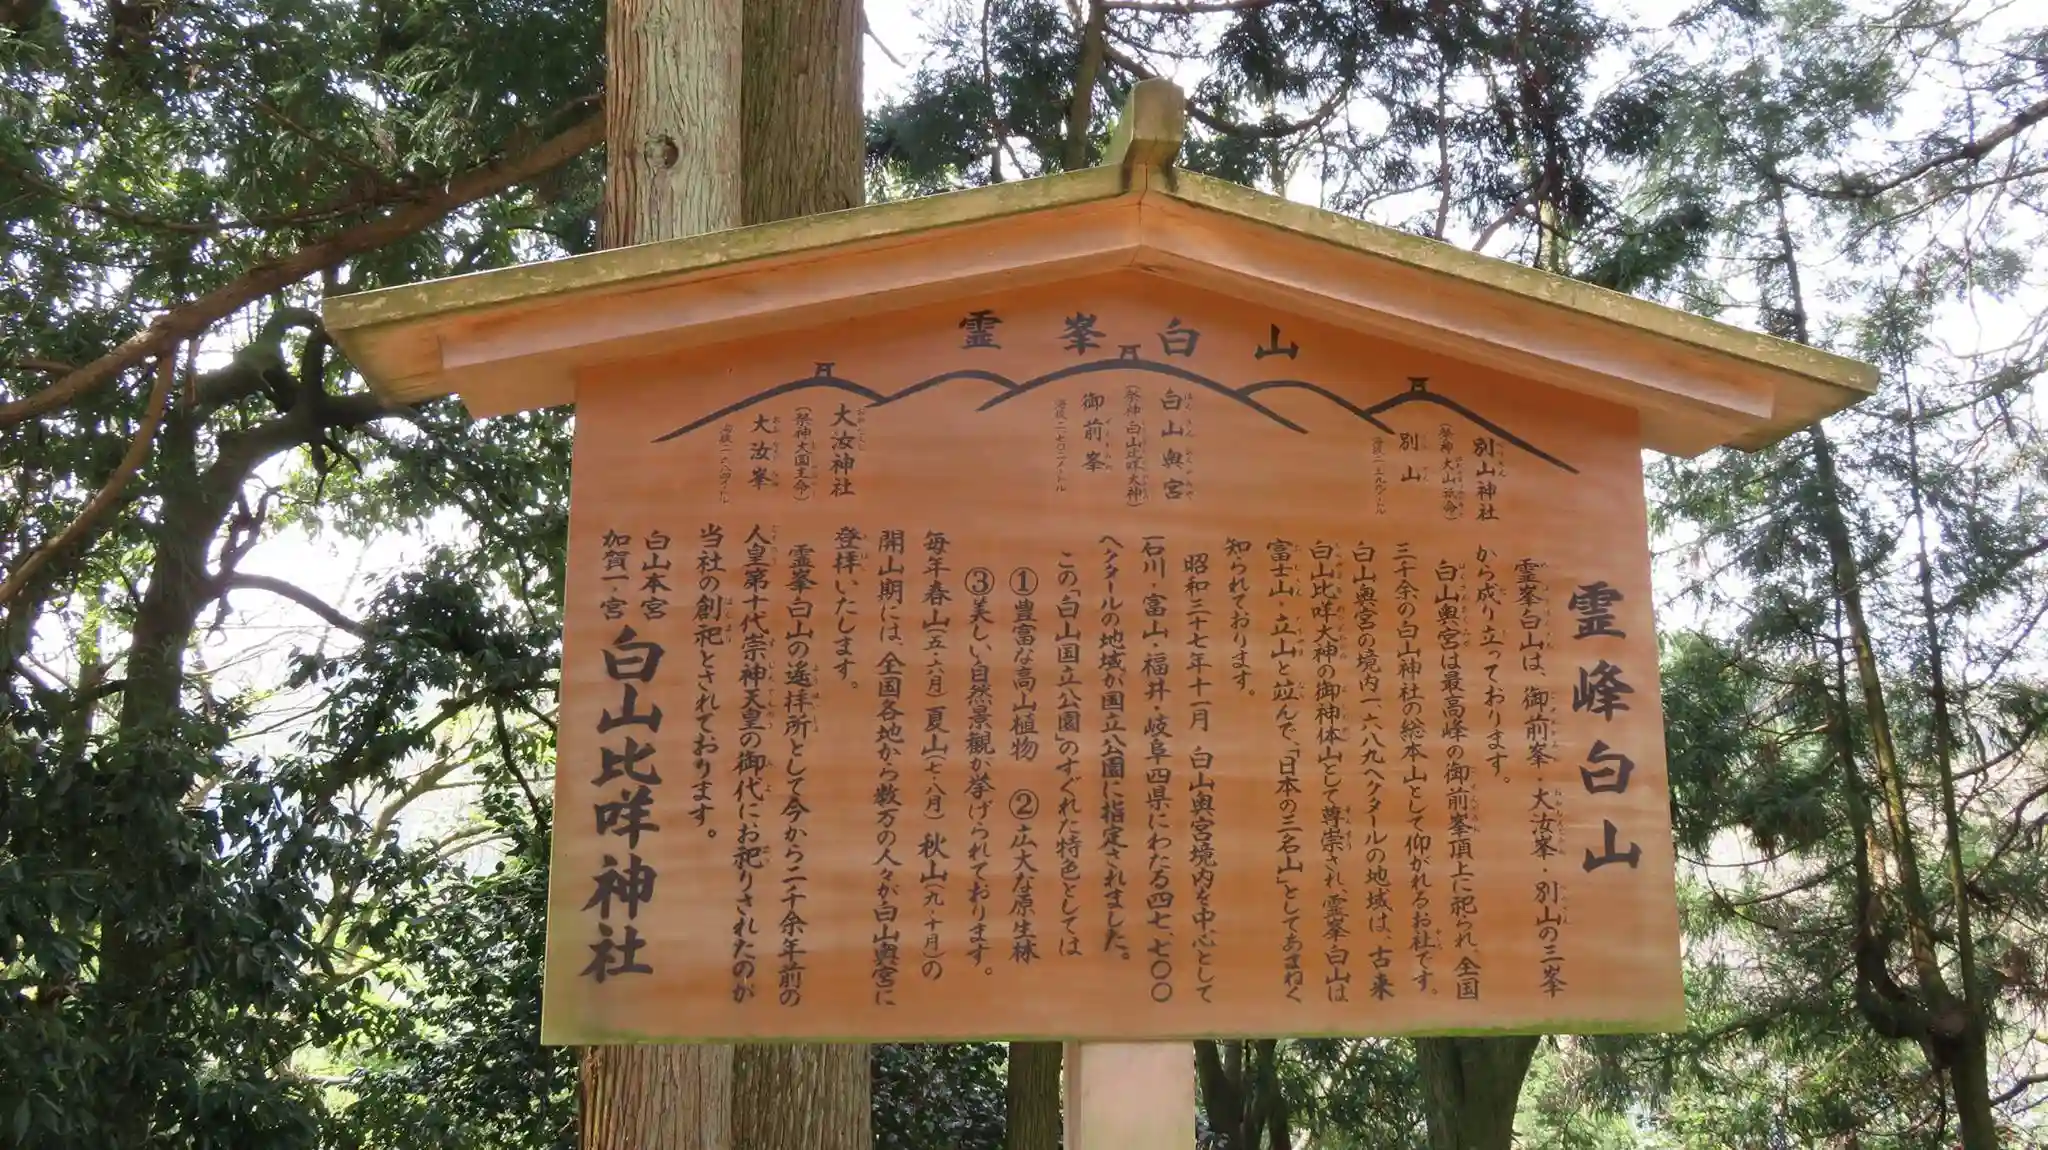 霊峯白山
別山神社
(祭神 大山祇命)
別山
白山奥宮
(祭神 白山比咩大神)
御前峯
海抜二七〇二メートル
大汝神社
(祭神 大国主命)
大汝峯
霊峰白山
霊峯白山は、御前峯・大汝峯・別山の三峯
から成り立っております。
白山奥宮は最高峰の御前峯頂上に祀られ、全国
三千余の白山神社の総本山として仰がれるお社です。
白山奥宮の境内一六八九ヘクタールの地域は、古来
白山比咩大神の御神体山として尊崇され、霊峯白山は
富士山・立山と竝んで、「日本の三名山」としてあまねく
知られております。
昭和三十七年十一月 白山奥宮境内を中心として
石川・富山・福井・岐阜四県にわたる四七、七〇〇
ヘクタールの地域が国立公園に指定されました。
この「白山国立公園」のすぐれた特色としては
①豊富な高山植物 ②広大な原生林
③美しい自然景観が挙げられております。
毎年春山(五・六月)夏山(七・八月)秋山(九・十月)の
開山期には、全国各地から数万の人々が白山奥宮に
登拝いたします。
霊峯白山の遙拝所として今から二千余年前の
人皇第十代崇神天皇の御代にお祀りされたのが
当社の創祀とされております。
白山本宮
加賀一ノ宮
白山比咩神社